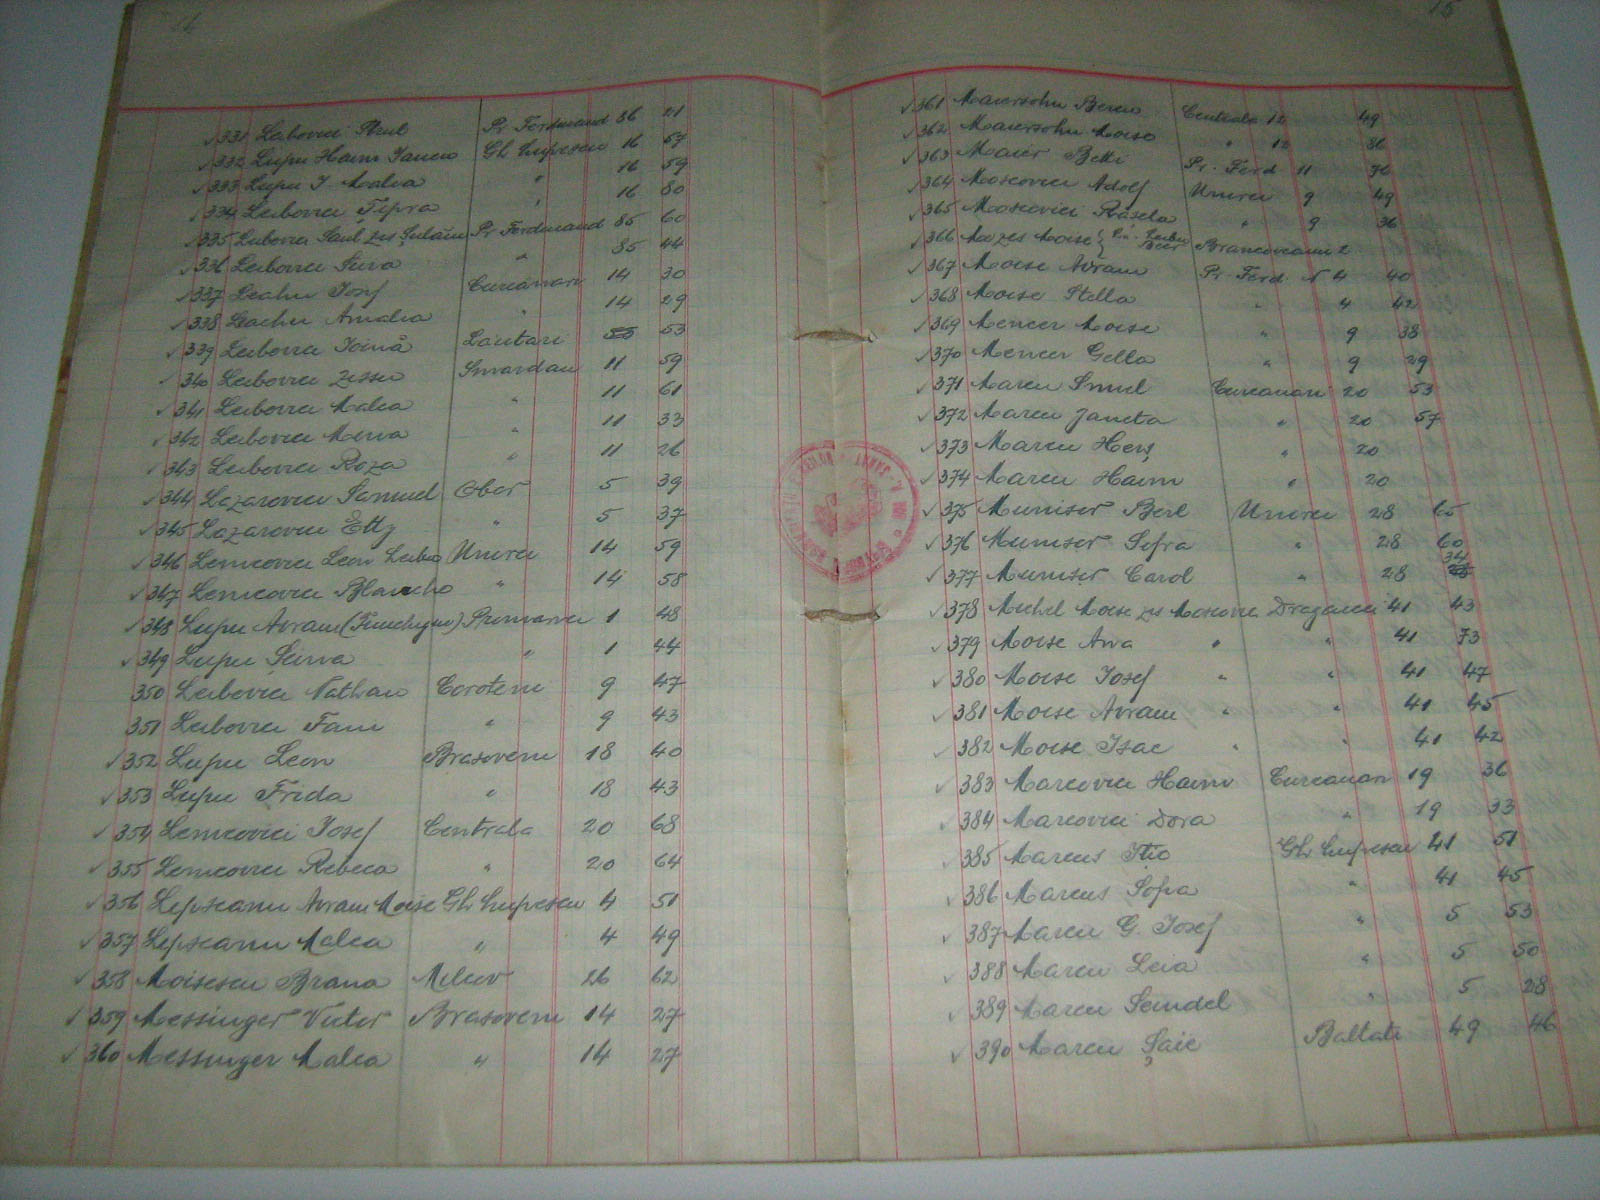 14
331 Leibovici Strul Pr Ferdinand 86 21
332 Lupu Haim Iancu Gh Lupescu 16 67
333 Lupu I. Malca " 16 59
334 Leibovici Țipra " 16 80
335 Leibovici Saul zis Pr Ferdinand 85 60
336 Leibovici Sura " 85 44
337 Leahu Iosif Curcanari 14 30
338 Leahu Amalia " 14 29
339 Leibovici Lăutari 53
340 Leibovici Zissu Smardan 11 59
341 Leibovici Malca " 11 61
342 Leibovici " 11 33
343 Leibovici Roza " 11 26
344 Lazarovici Samuel Obor 5 39
345 Lazarovici Etty " 5 37
346 Lemcovici Leon Leibu Unirei 14 59
347 Lemcovici " 14 58
348 Lupu Avram Primariei 1 48
349 Lupu " 1 44
350 Leibovici Nathan Coroteni 9 47
351 Leibovici Fani " 9 43
352 Lupu Leon Brasoveni 18 40
353 Lupu Frida " 18 43
354 Lemcovici Iosif Centrala 20 68
355 Lemcovici Rebeca " 20 64
356 Lepseanu Avram Moise Gh Lupescu 4 51
357 Lepseanu Malca " 4 49
358 Moisescu Brana Milcov 26 62
359 Messinger Victor Brasoveni 14 27
360 Messinger Malca " 14 27
15
361 Maiersohn Bercu Centrala 12 49
362 Maiersohn Moise " 12 86
363 Maier Betti Pr. Ferd 11 76
364 Moscovici Adolf Unirei 9 49
365 Moscovici Rasela " 9 36
366 Mozes Moise Brancoveanu 2
367 Moise Avram Pr. Ferd. N 4 40
368 Moise Stella " 4 42
369 Mencer Moise " 9 38
370 Mencer Gella " 9 29
371 Marcu Smul Curcanari 20 53
372 Marcu Janeta " 20 57
373 Marcu Herș " 20
374 Marcu Haim " 20
375 Muniser Berl Unirei 28 65
376 Muniser Sofra " 28 60
377 Muniser Carol " 28 34
378 Michel Moise zis Moscovici Dragaicei 41 43
379 Moise Ana " " 41 73
380 Moise Iosif " " 41 47
381 Moise Avram " " 41 45
382 Moise Isac " " 41 42
383 Marcovici Haim Curcanari 19 36
384 Marcovici Dora " 19 33
385 Marcus Itic Gh Lupescu 41 51
386 Marcus Sofia " 41 45
387 Marcu G. Iosif " 5 53
388 Marcu Leia " 5 50
389 Marcu Seindel " 5 28
390 Marcu Șaie Baltati 49 46